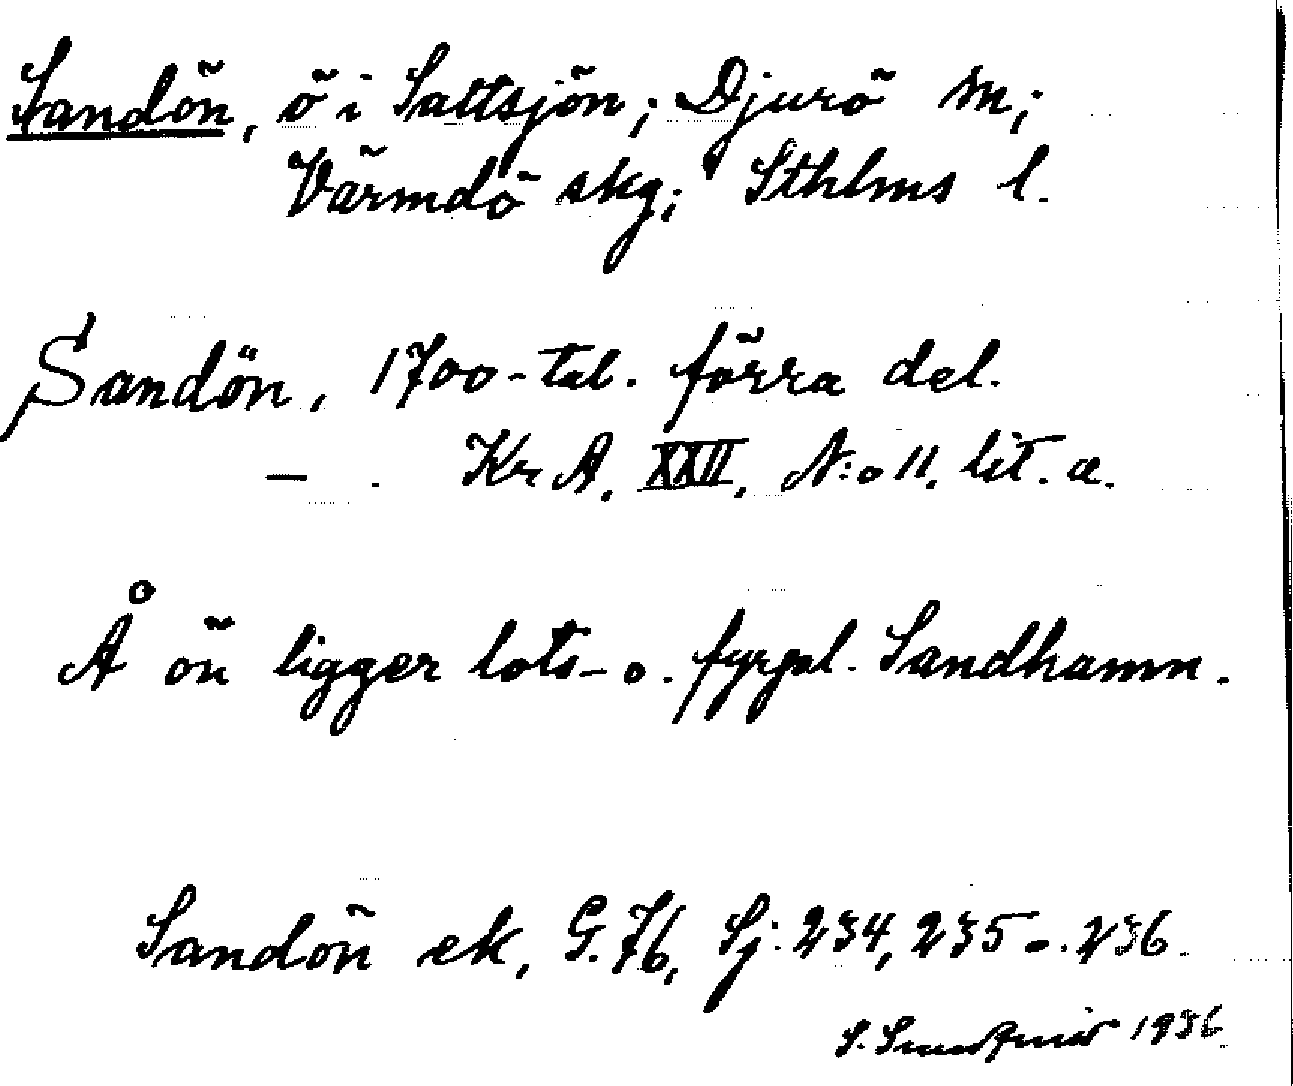 Sandön, ö i Saltsjön; Djurö sn;
Värmdö skg; Sthlms l.
Sandön, 1700-tal. förra del.
— . Kr A. XXII, N:o 11. lit. a.
Å ön ligger lots- o. fyrpl. Sandhamn.
Sandön ek, G. 76, Sj: 234, 235 o. 236.
S. 1936